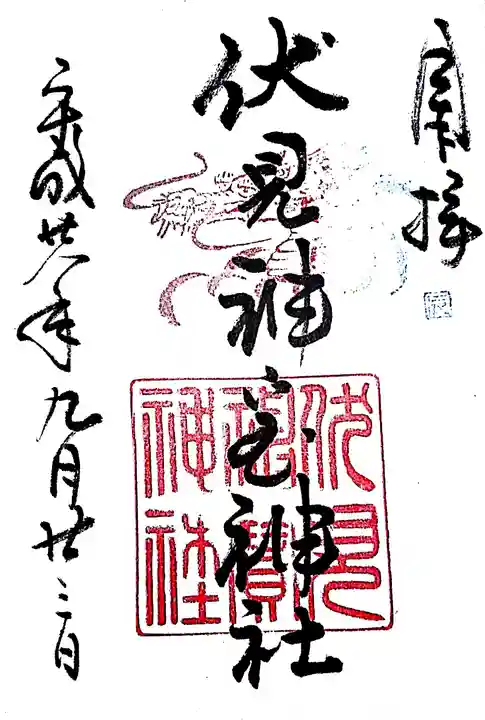 拝
伏見神宝神社
平成廿八年九月廿三日
伏見
神寶
神社